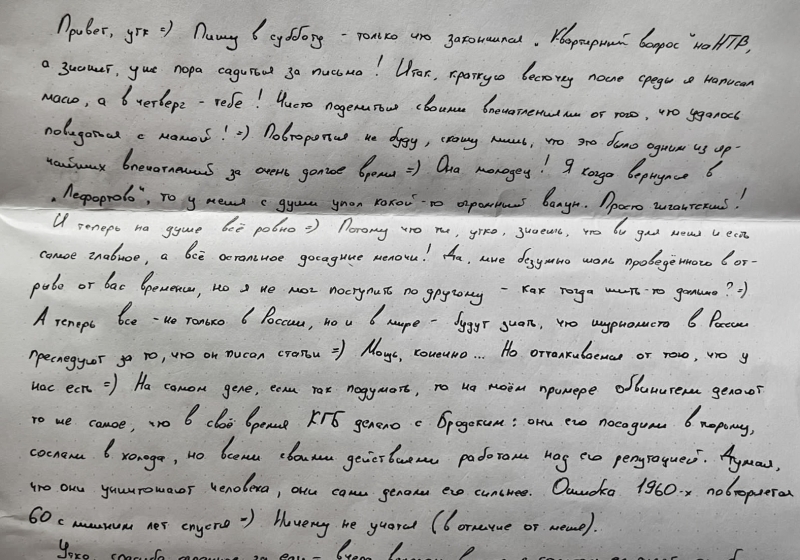 Привет, утк =) Пишу в субботу - только что закончился „Квартирный вопрос" на НТВ,
а значит, уже пора садиться за письма! Итак, краткую весточку после среды я написал
маою, а в четверг - тебе! Чисто поделиться своими впечатлениями от того, что удалось
повидаться с мамой! =) Повторяться не буду, скажу лишь, что это было одним из яр-
чайших впечатлений за очень долгое время =) Она молодец! Я когда вернулся в
„Лефортово", то у меня с души упал какой-то огромный валун. Просто гигантский!
И теперь на душе всё ровно =) Потому что ты, утко, знаешь, что вы для меня и есть
самое главное, а всё остальное досадные мелочи! Да, мне безумно жаль проведённого в от-
рыве от вас времени, но я не мог поступить по другому - как тогда жить-то дальше? =)
А теперь все - не только в России, но и в мире - будут знать, что журналиста в России
преследуют за то, что он писал статьи =) Мощь, конечно... Но отталкиваемся от того, что у
нас есть =) На самом деле, если так подумать, то на моём примере обвинители делают
то же самое, что в своё время КГБ делало с Бродским: они его посадили в тюрьму,
сослали в холода, но всеми своими действиями работали над его репутацией. Думая,
что они уничтожают человека, они сами делали его сильнее. Ошибка 1960-х повторяется
60 с лишним лет спустя =) Ничему не учатся (в отличие от меня).
Утко, спасибо за